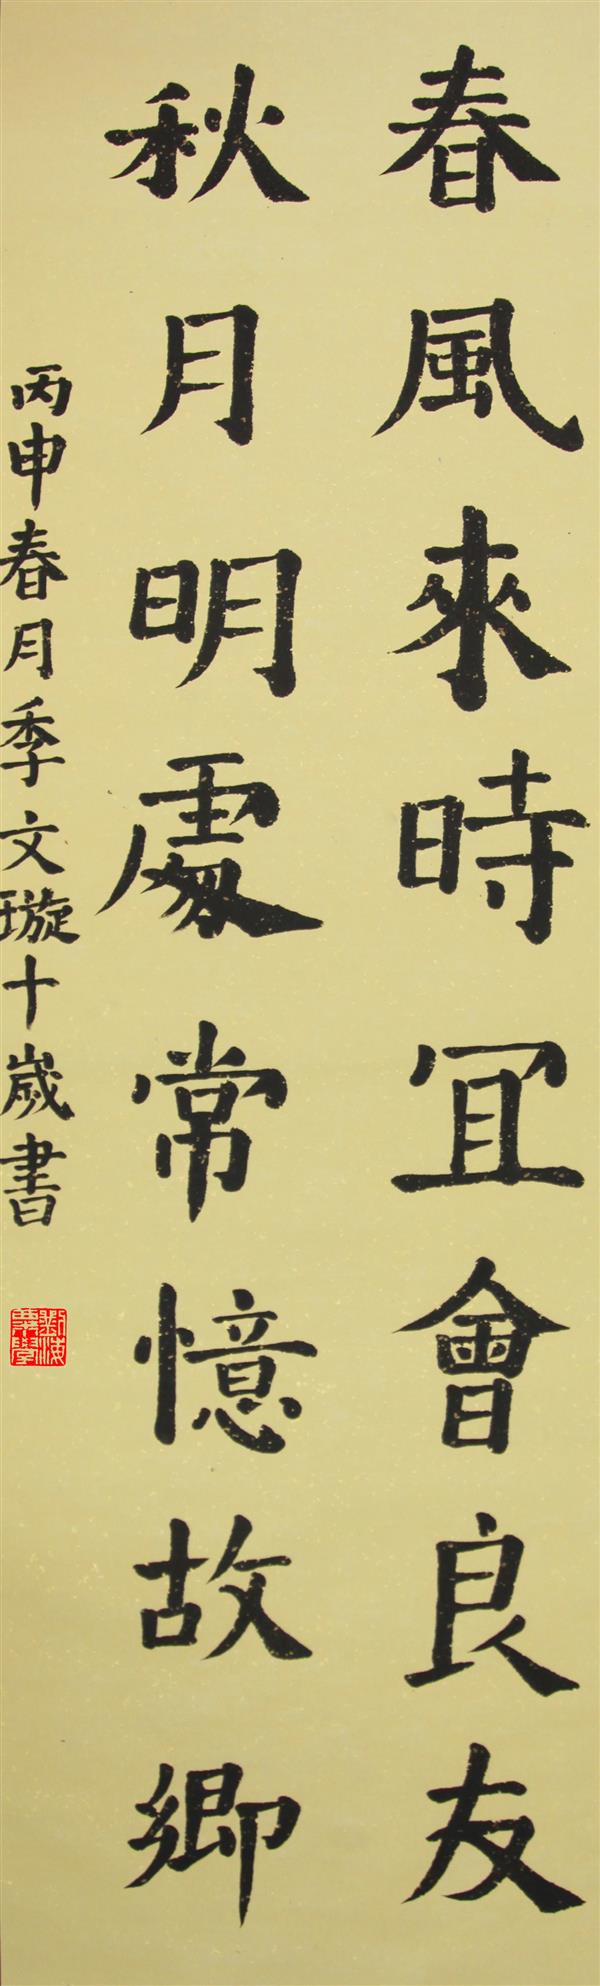 春風來時冝會良友
秋月明處常憶故鄉
丙申春月季文璇十歲書